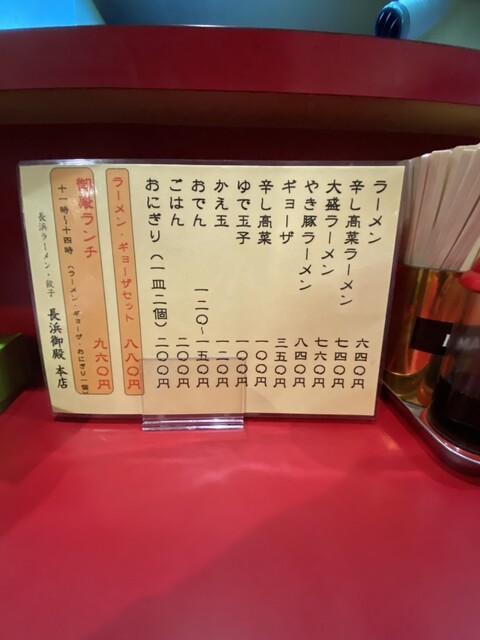 ラーメン 六四〇円
辛し高菜ラーメン 七四〇円
大盛ラーメン 七六〇円
やき豚ラーメン 八四〇円
ギョーザ 三五〇円
辛し高菜 一〇〇円
ゆで玉子 一〇〇円
かえ玉 一二〇円
おでん 一二〇〜一五〇円
ごはん 二〇〇円
おにぎり(一皿二個) 二〇〇円
ラーメン・ギョーザセット 八八〇円
御殿ランチ 九六〇円
十一時〜十四時 (ラーメン・ギョーザ・おにぎり一個)
長浜ラーメン・餃子 長浜御殿 本店